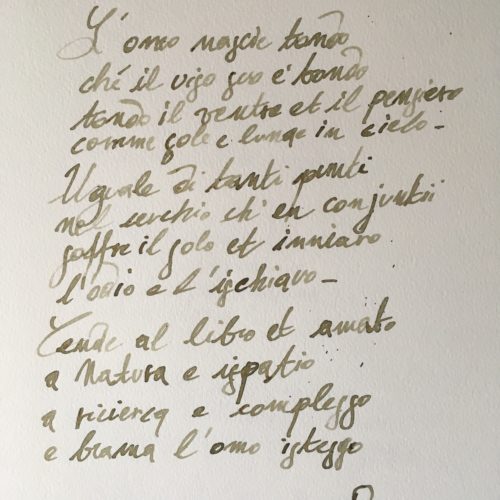 L'omo nascie tondo
ché il viso suo è tondo
tondo il ventre et il pensiero
comme sole e lunae in cielo -
Uguale di tanti punti
nel cerchio ch'en conjuntii
soffre il solo et inniaro
l'odio e l'ischiavo -
Tende al libro et amato
a Natura e ispatio
a riciercq e complesso
e brama l'omo istesso